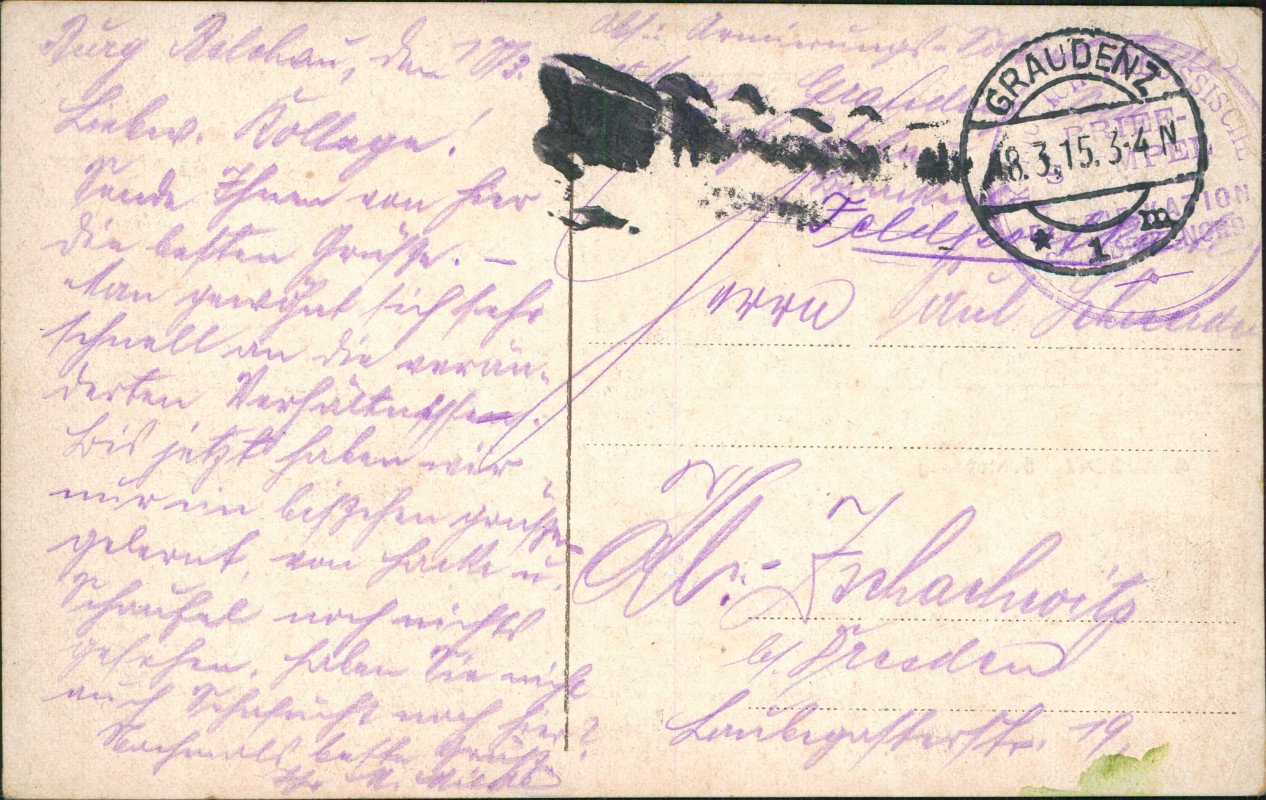 Burg Belchau, den 17/3.
Liebw. Kollege!
Sende Ihnen von hier
die besten Grüße. –
Man gewöhnt sich sehr
schnell an die verän-
derten Verhältnisse.
Bis jetzt haben wir
nur ein bißchen grüßen
gelernt, von Hacke u.
Schaufel noch nichts
gesehen. Haben Sie nicht
auch Sehnsucht nach hier?
Nochmals beste Grüße
Ihr
Abs.: Armierungs-
Feldpost
GRAUDENZ
18.3.15. 3-4 N
* 1 m
BRIEF-
STEMPEL
Herrn Paul
Kl.-Zschachwitz
b/ Dresden
Laubegasterstr. 19.